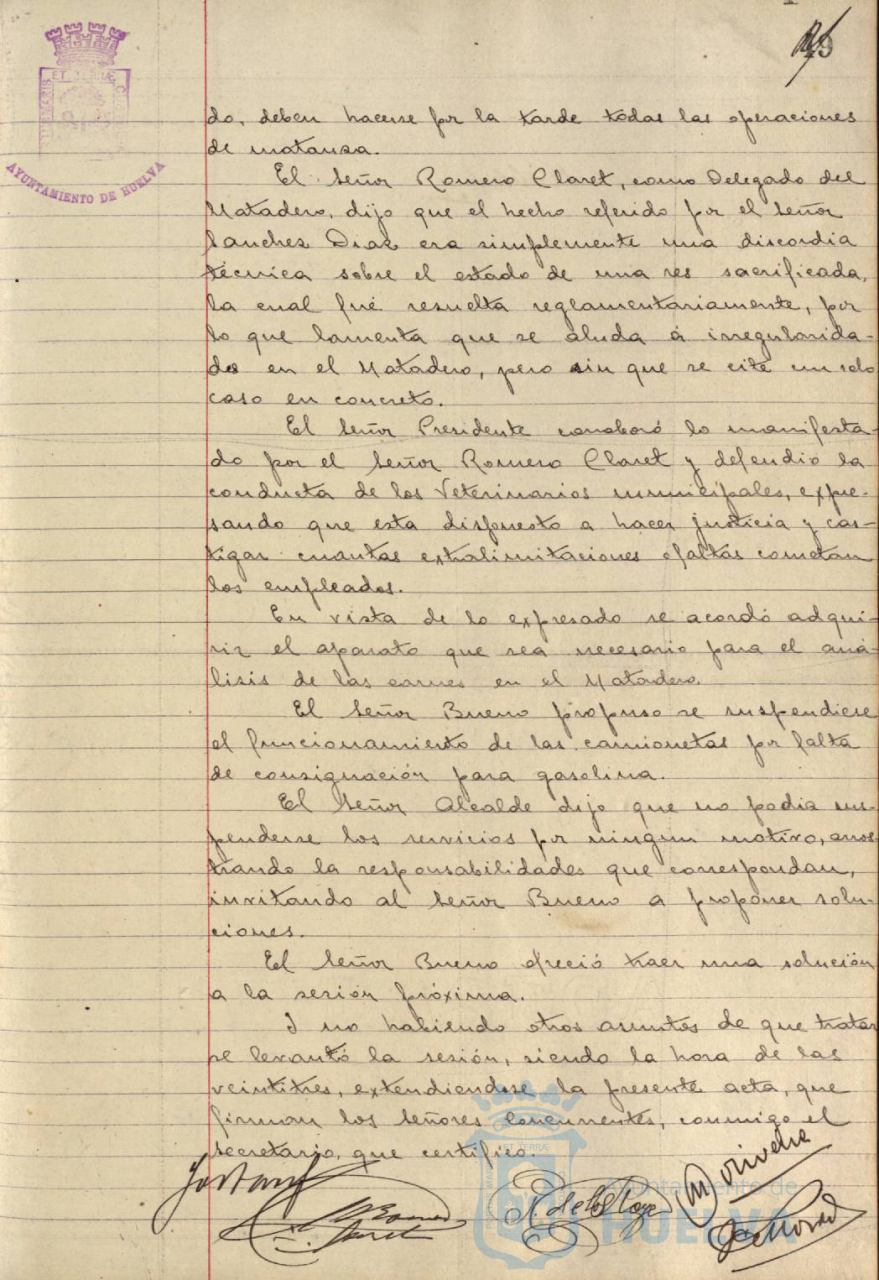 49
ET TERRE
AYUNTAMIENTO DE HUELVA
do, deben hacerse por la tarde todas las operaciones
de matanza.
El Señor Romero Claret, como Delegado del
Matadero, dijo que el hecho referido por el Señor
Sanchez Diaz era simplemente una discordia
técnica sobre el estado de una res sacrificada,
la cual fué resuelta reglamentariamente, por
lo que lamenta que se aluda á irregularida-
des en el Matadero, pero sin que se cite un solo
caso en concreto.
El Señor Presidente corroboró lo manifesta-
do por el Señor Romero Claret y defendió la
conducta de los Veterinarios municipales, expre-
sando que esta dispuesto a hacer justicia y cas-
tigar cuantas extralimitaciones o faltas cometan
los empleados.
En vista de lo expresado se acordó adqui-
rir el aparato que sea necesario para el aná-
lisis de las carnes en el Matadero.
El Señor Bueno propuso se suspendiese
el funcionamiento de las camionetas por falta
de consignación para gasolina.
El Señor Alcalde dijo que no podia sus-
penderse los servicios por ningun motivo, arros-
trando la responsabilidades que correspondan,
invitando al Señor Bueno a proponer solu-
ciones.
El Señor Bueno ofreció traer una solución
a la sesión próxima.
I no habiendo otros asuntos de que tratar
se levantó la sesión, siendo la hora de las
veintitres, extendiendose la presente acta, que
firman los Señores Concurrentes, conmigo el
Secretario, que certifico.
Ayuntamiento de
HUELVA